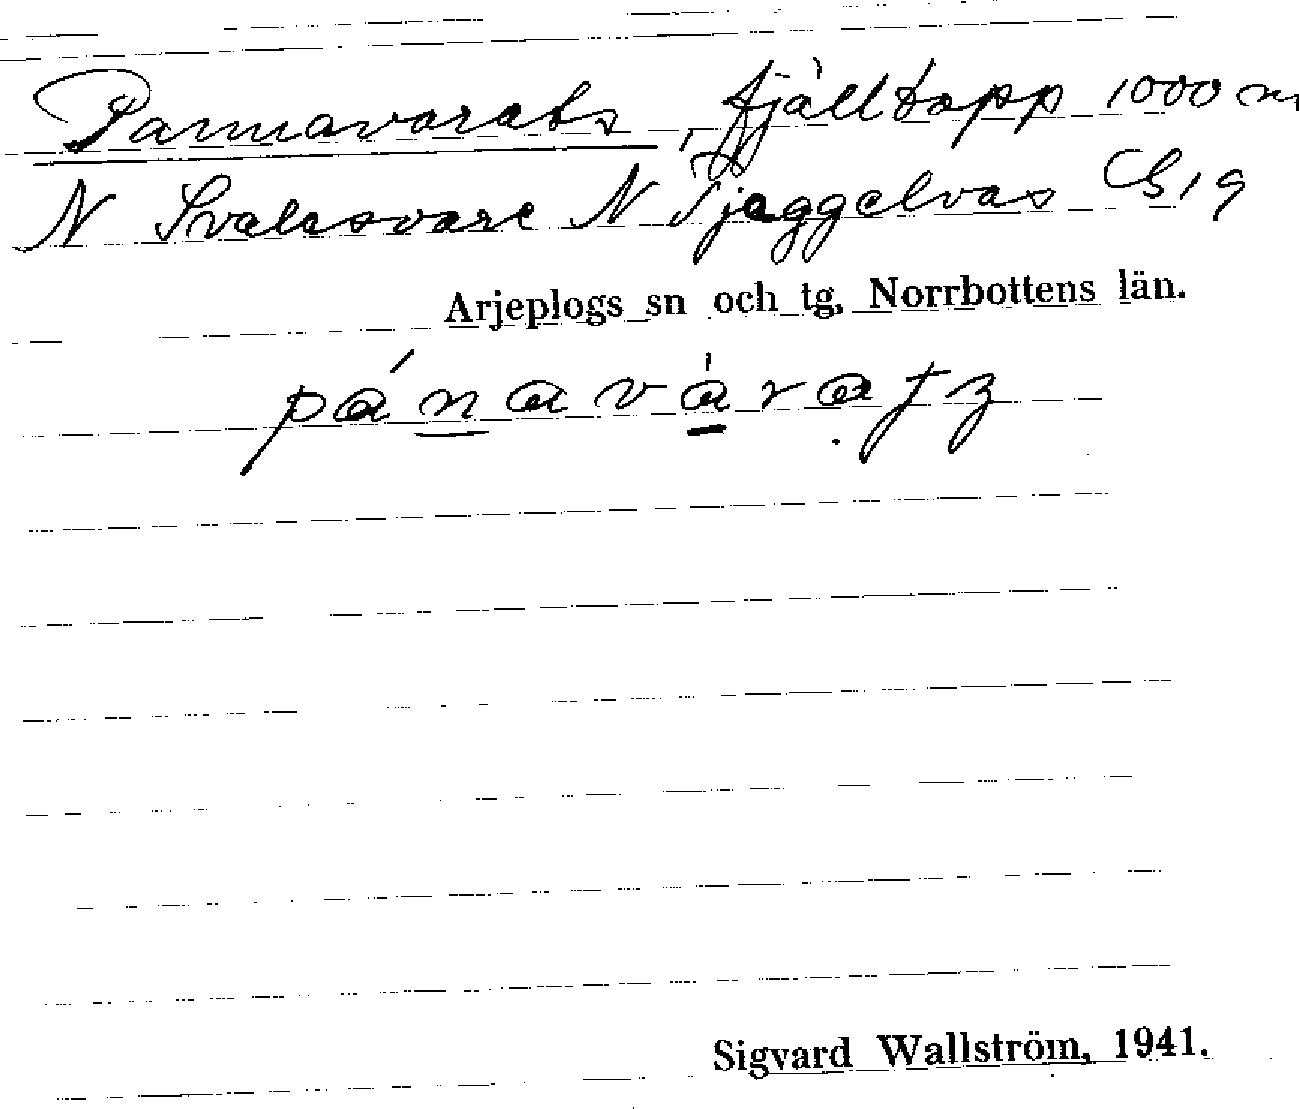 Pannavarats, fjälltopp 1000 m
N Svalesvare N Tjeggelvas G19
Arjeplogs sn och tg, Norrbottens län.
pánavàratz
Sigvard Wallström, 1941.